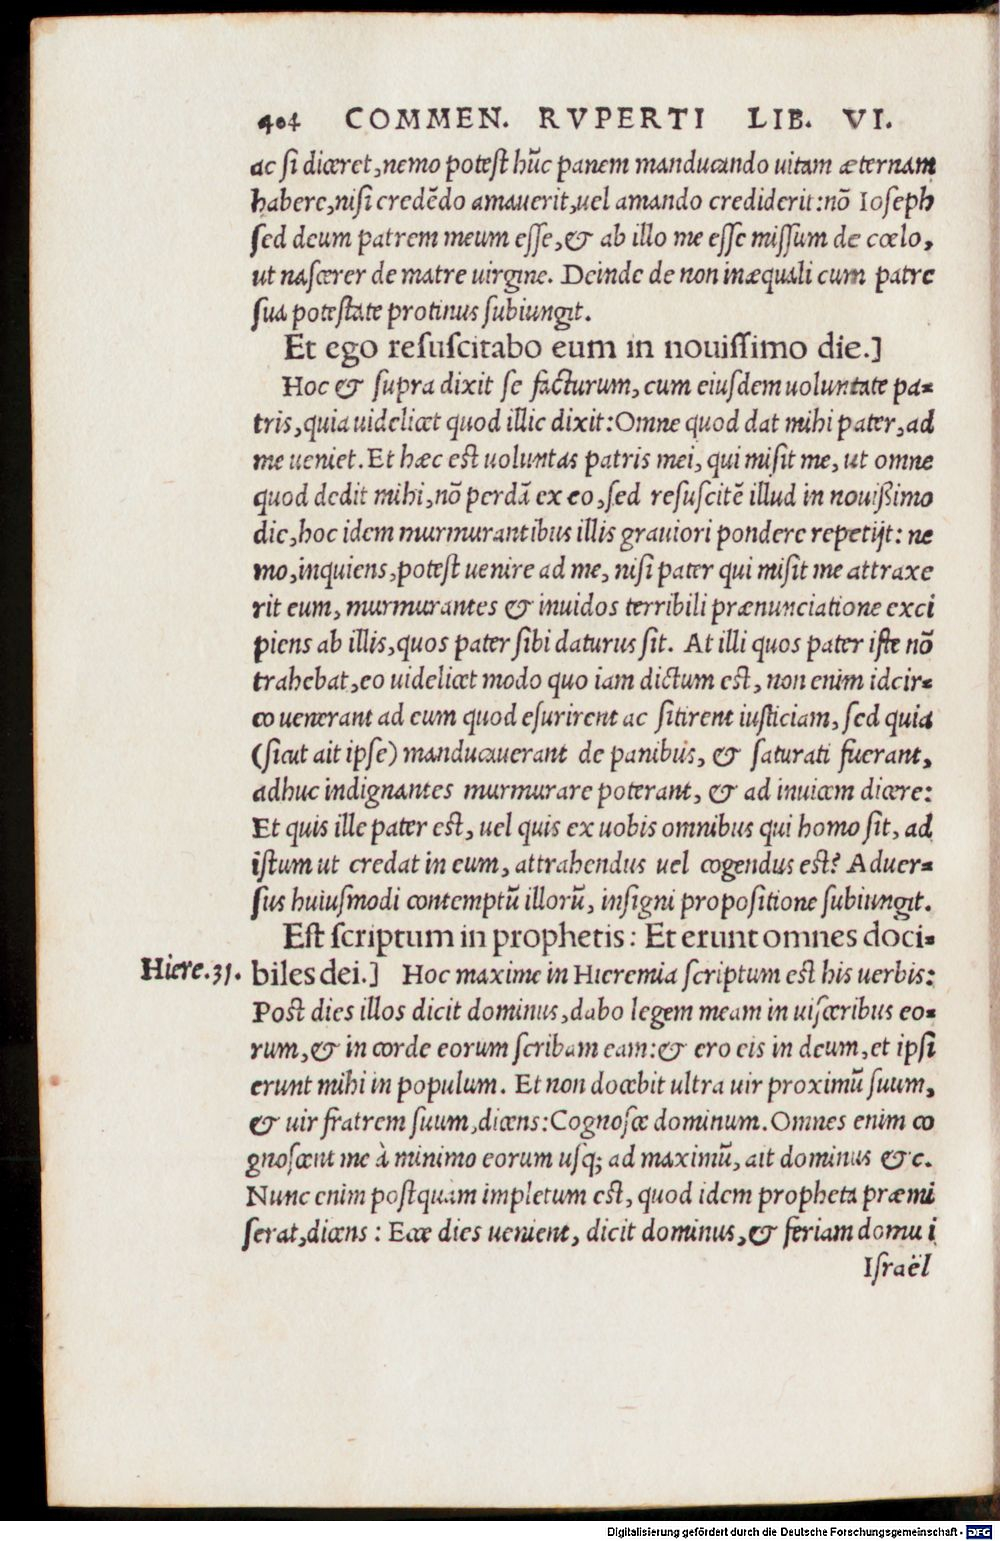 404 COMMEN. RVPERTI LIB. VI.
ac ſi diceret, nemo poteſt hūc panem manducando uitam æternam
habere, niſi credēdo amauerit, uel amando crediderit: nō Ioſeph
ſed deum patrem meum eſſe, & ab illo me eſſe miſſum de cœlo,
ut naſcerer de matre uirgine. Deinde de non inæquali cum patre
ſua poteſtate protinus ſubiungit.
Et ego reſuſcitabo eum in nouiſſimo die.]
Hoc & ſupra dixit ſe facturum, cum eiuſdem uoluntate pa-
tris, quia uidelicet quod illic dixit: Omne quod dat mihi pater, ad
me ueniet. Et hæc eſt uoluntas patris mei, qui miſit me, ut omne
quod dedit mihi, nō perdā ex eo, ſed reſuſcitē illud in nouißimo
die, hoc idem murmurantibus illis grauiori pondere repetijt: ne
mo, inquiens, poteſt uenire ad me, niſi pater qui miſit me attraxe
rit eum, murmurantes & inuidos terribili prænunciatione exci
piens ab illis, quos pater ſibi daturus ſit. At illi quos pater iſte nō
trahebat, eo uidelicet modo quo iam dictum eſt, non enim idcir-
co uenerant ad eum quod eſurirent ac ſitirent iuſticiam, ſed quia
(ſicut ait ipſe) manducauerant de panibus, & ſaturati fuerant,
adhuc indignantes murmurare poterant, & ad inuicem dicere:
Et quis ille pater eſt, uel quis ex uobis omnibus qui homo ſit, ad
iſtum ut credat in eum, attrahendus uel cogendus eſt? Aduer-
ſus huiuſmodi contemptū illorū, inſigni propoſitione ſubiungit.
Eſt ſcriptum in prophetis: Et erunt omnes doci-
Hiere.31. biles dei.] Hoc maxime in Hieremia ſcriptum eſt his uerbis:
Poſt dies illos dicit dominus, dabo legem meam in uiſceribus eo-
rum, & in corde eorum ſcribam eam: & ero eis in deum, et ipſi
erunt mihi in populum. Et non docebit ultra uir proximū ſuum,
& uir fratrem ſuum, dicens: Cognoſce dominum. Omnes enim co
gnoſcent me à minimo eorum uſq; ad maximū, ait dominus &c.
Nunc enim poſtquam impletum eſt, quod idem propheta præmi
ſerat, dicens: Ecce dies uenient, dicit dominus, & feriam domui
Iſraël
Digitalisierung gefördert durch die Deutsche Forschungsgemeinschaft - DFG